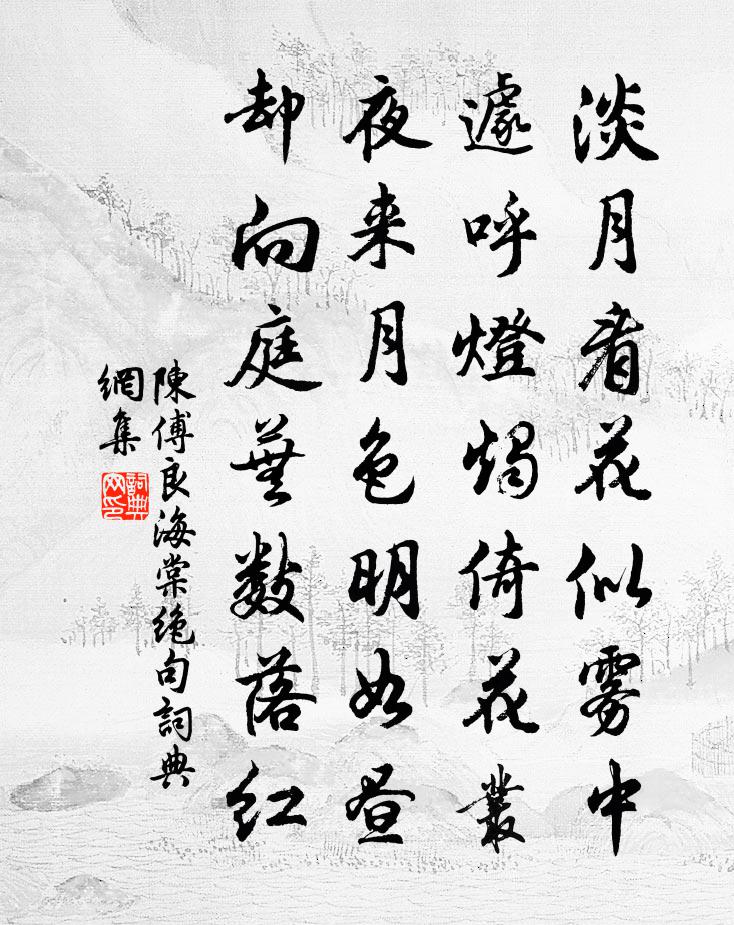 淡月看花似雾中
遽呼燈燭倚花叢
夜来月色明如昼
却向庭蕪數落红
陳傅良海棠絶句詞典
網集
詞典
网印